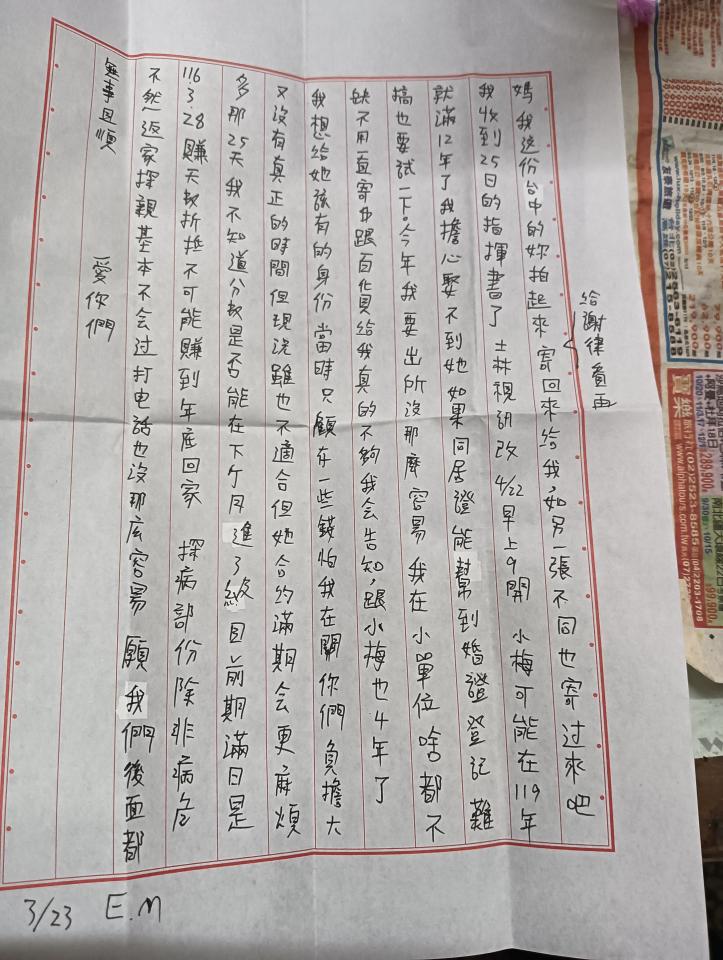 給謝律看再
媽我這份台中的妳拍起來寄回來給我,如另一張不同也寄過來吧
我收到25日的指揮書了 士林視訊改4/22早上9開 小梅可能在119年
就滿12年了我擔心娶不到她如果同居證能幫到婚證登記難
搞也要試一下。今年我要出所沒那麼容易我在小單位啥都不
缺不用一直寄束跟百貨給我真的不夠我会告知,跟小梅也4年了
我想給她該有的身份當時只顧存一些錢怕我在關你們負擔大
又沒有真正的時間但現況雖也不適合但她合約滿期会更麻煩
多那25天我不知道分數是否能在下个月進3級目前期滿日是
116.3.28賺天數折抵不可能賺到年底回家 探病部份除非病危
不然返家探親基本不会过打电話也沒那広容易 願我們後面都
無事且順 愛你們
3/23 E.M
www.alphatours.com.tw
寶樂旅行社
(02)2523-8585
(04)2203-1708
9/30㊐、10/15